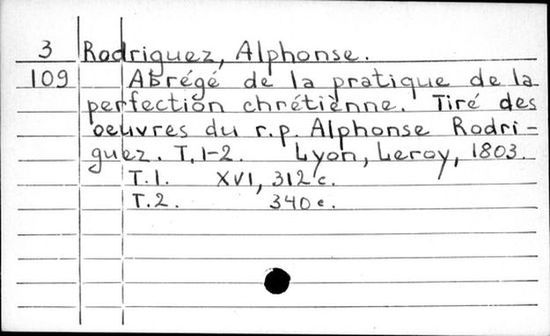 3 Rodriguez, Alphonse.
109 Abrégé de la pratique de la
perfection chrétienne. Tiré des
oeuvres du r.p. Alphonse Rodri-
guez. T. 1-2. Lyon, Leroy, 1803.
T.1. XVI, 312 c.
T.2. 340 c.